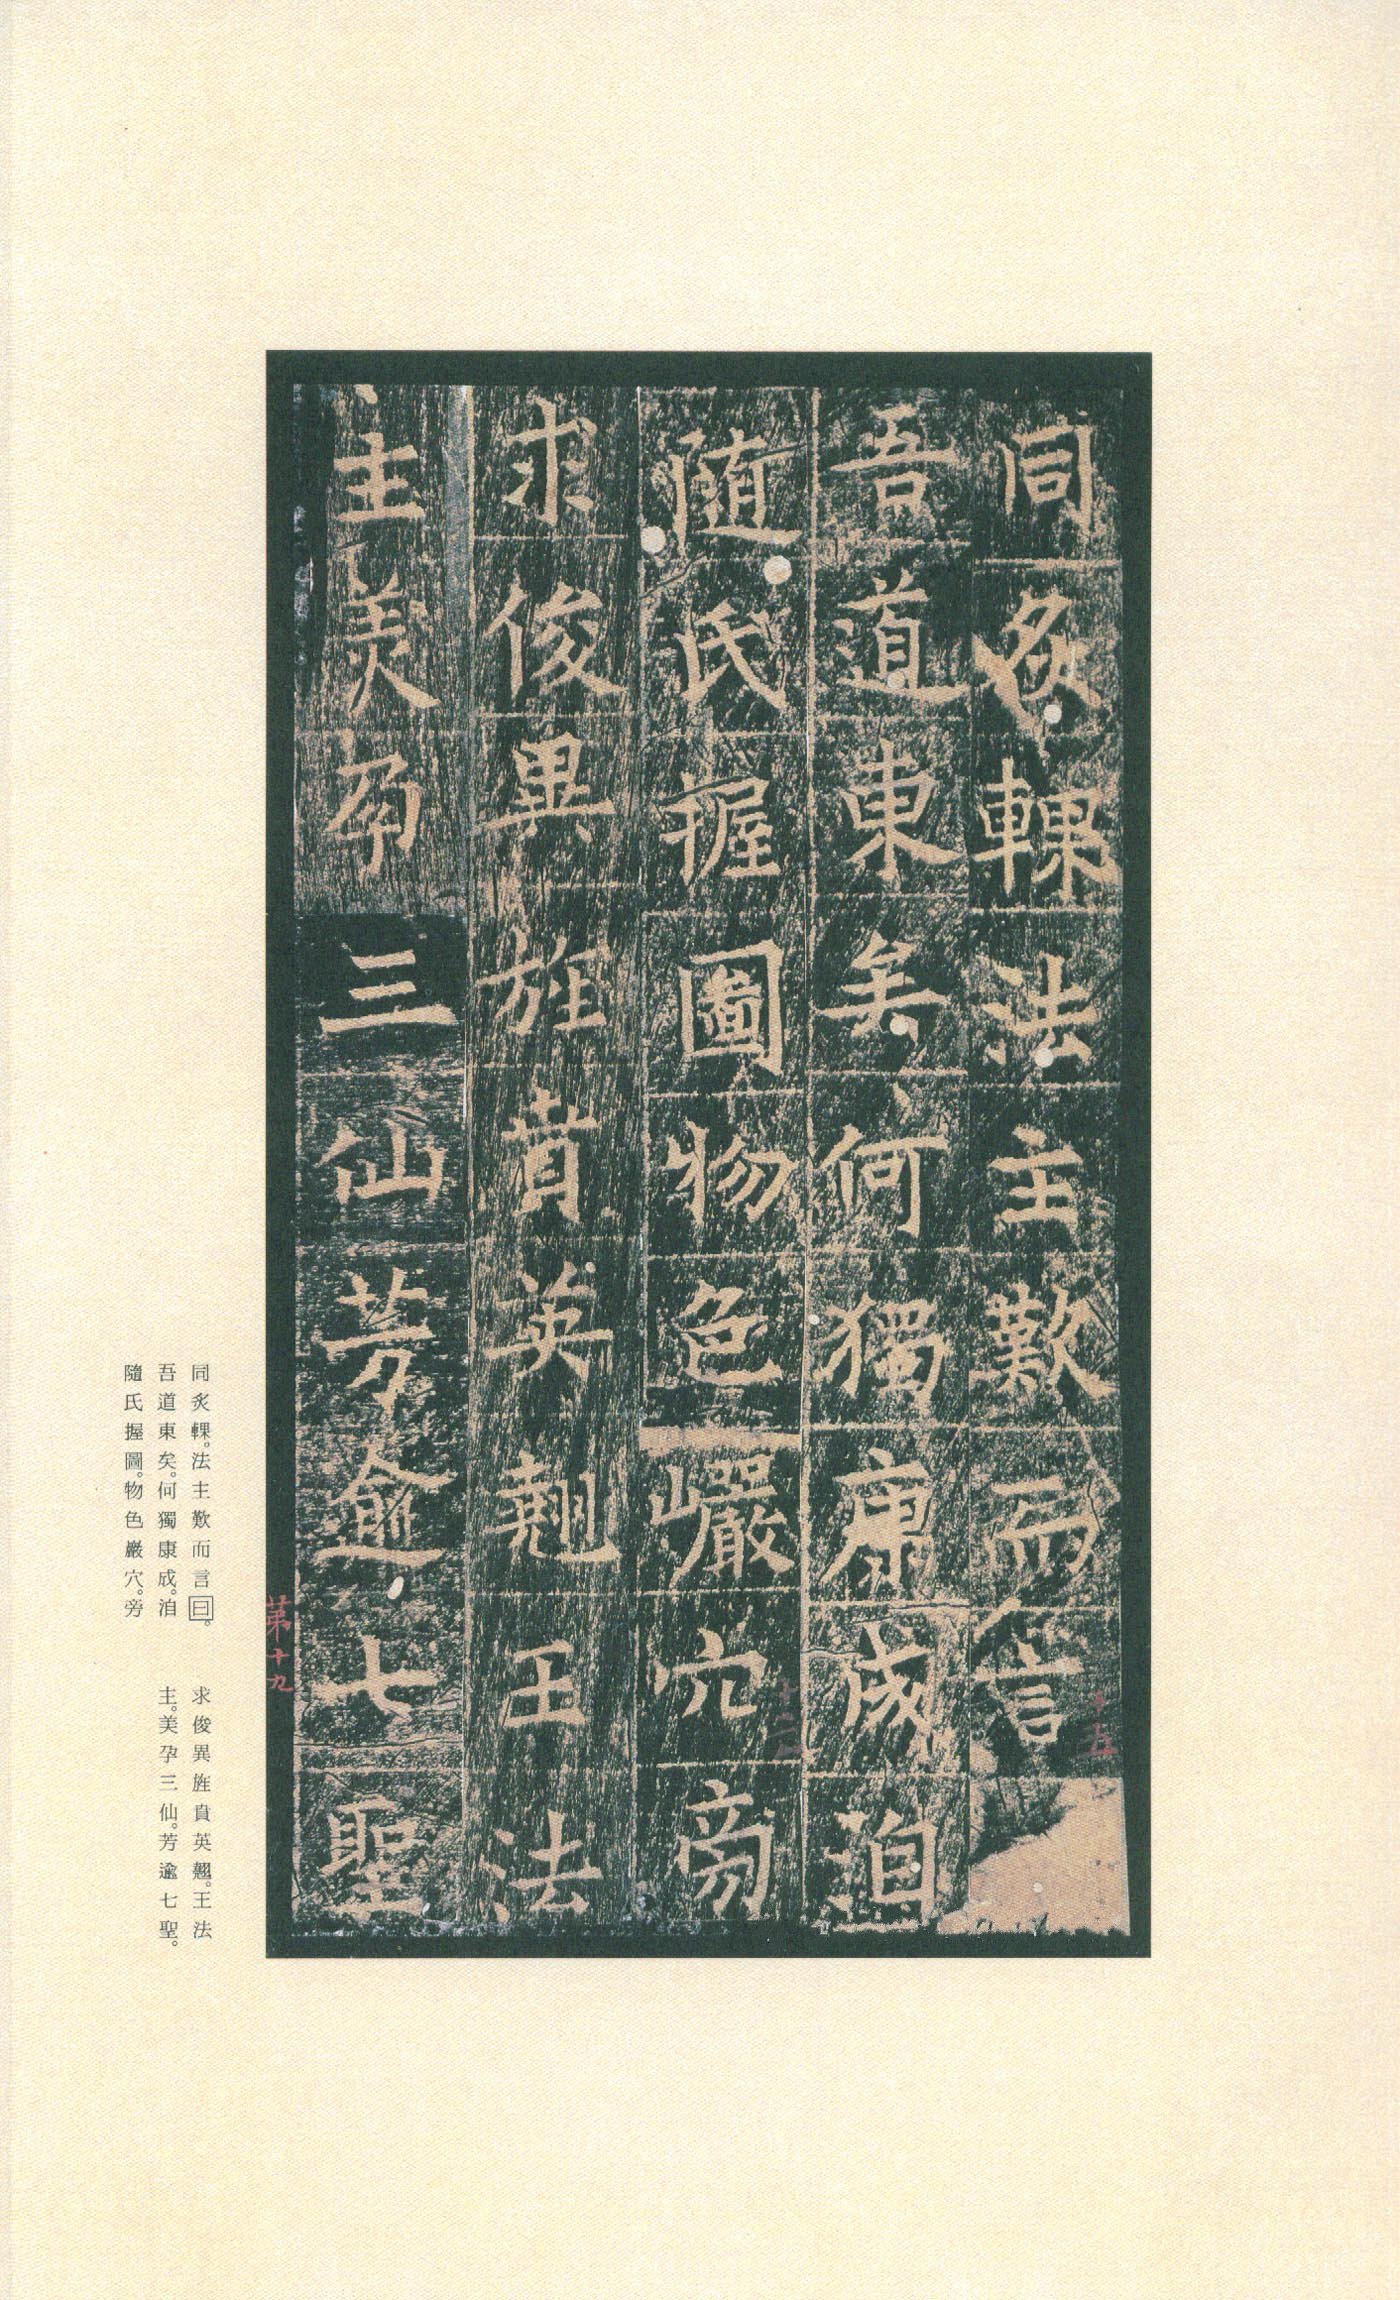 同炙輠法主歎而言
吾道東矣何獨康成洎
随氏握圖物色巖穴旁
求俊異旌賁英翹王法
主美孕三仙芳逾七聖
十五
第十九
同炙輠。法主歎而言曰。
吾道東矣。何獨康成。洎
隨氏握圖。物色巖穴。旁
求俊異旌賁英翹。王法
主。美孕三仙。芳逾七聖。